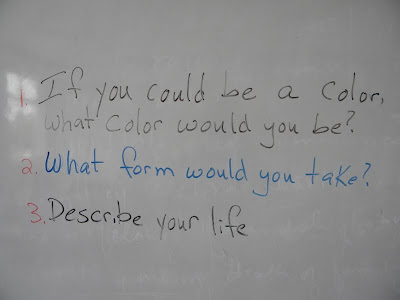 1. If you could be a color,
what color would you be?
2. What form would you take?
3. Describe your life